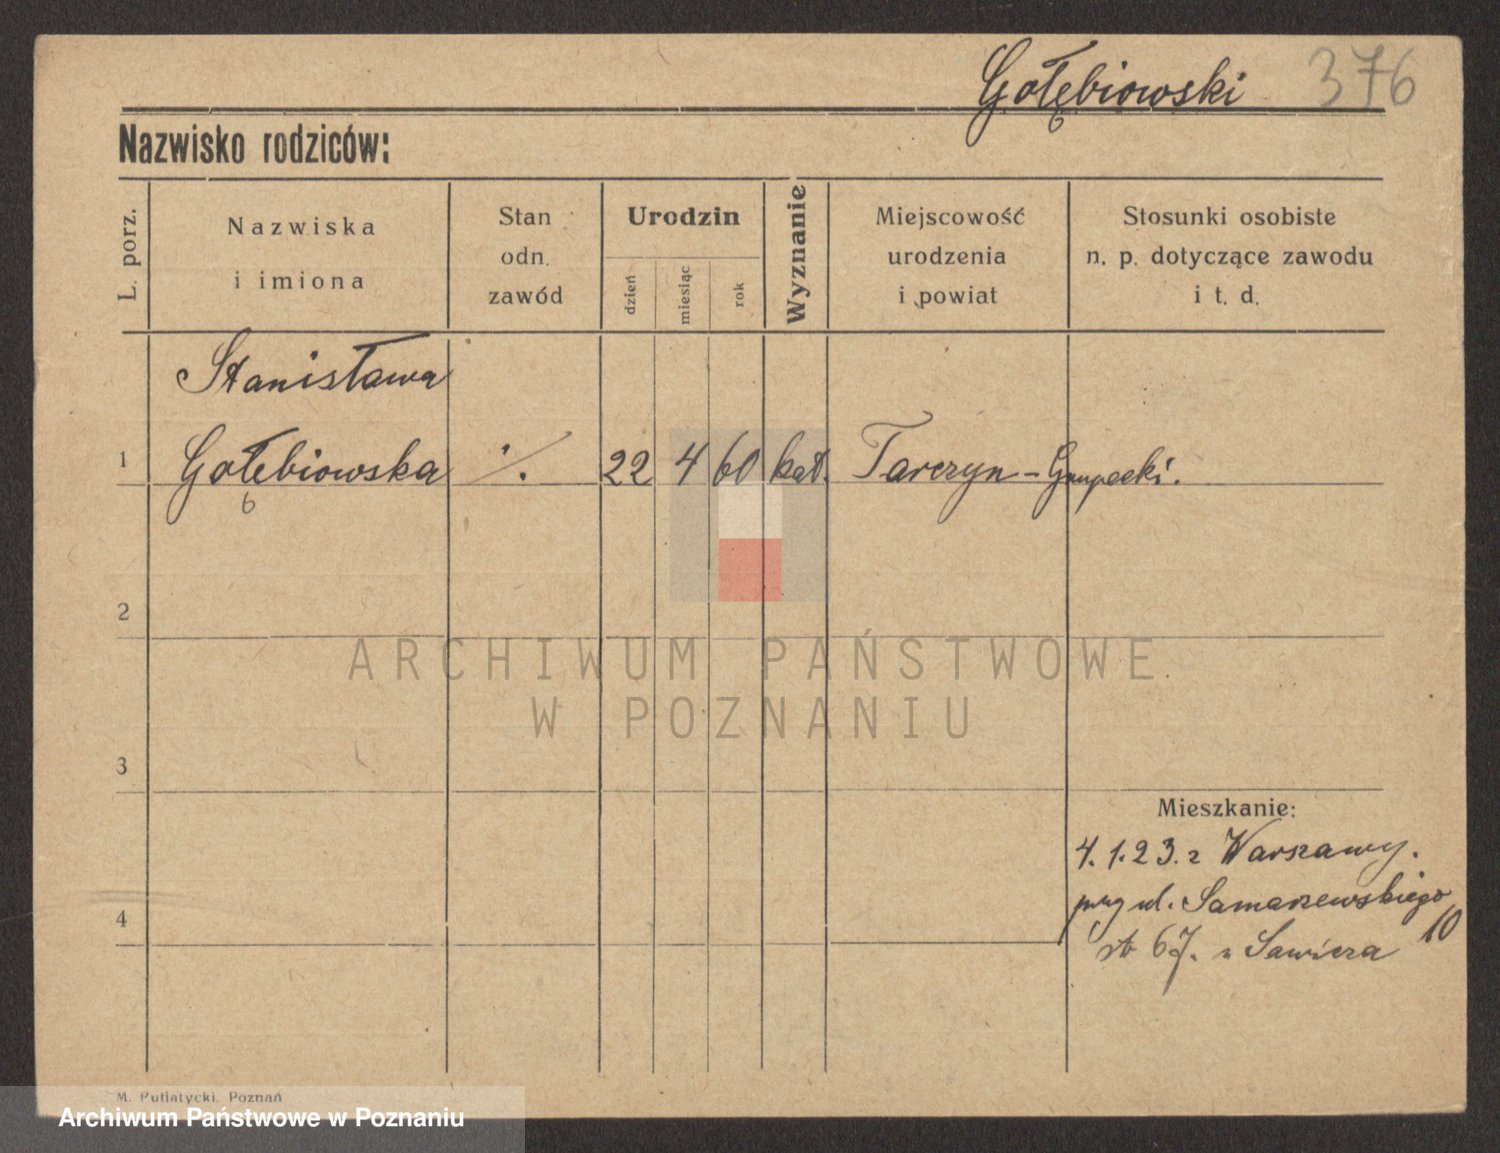 Gołębiowski 376
Nazwisko rodziców:
L. porz.
Nazwiska
i imiona
Stan
odn.
zawód
Urodzin
dzień
miesiąc
rok
Wyznanie
Miejscowość
urodzenia
i powiat
Stosunki osobiste
n. p. dotyczące zawodu
i t. d.
Stanisława
1 Gołębiowska ·/. 22 4 60 kat. Tarczyn - Grupecki.
2
ARCHIWUM PAŃSTWOWE
W POZNANIU
3
Mieszkanie:
4.1.23. z Warszawy.
przy ul. Samarzewskiego
10
4
67. u Sawicza
M. Putiatycki, Poznań
Archiwum Państwowe w Poznaniu